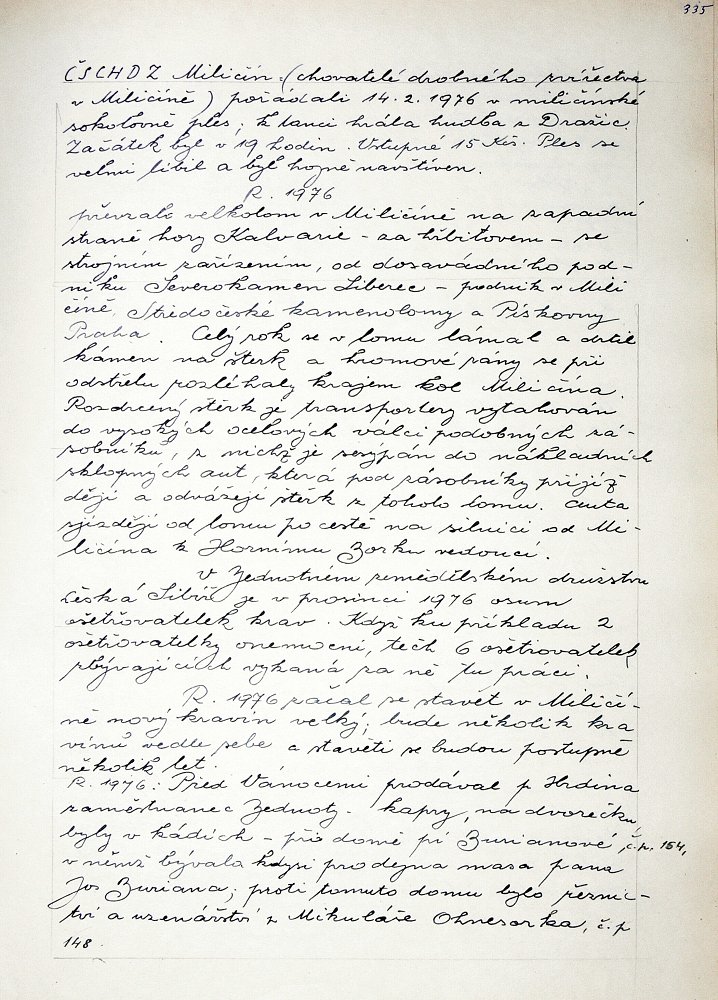 335
ČSCHDZ Miličín (chovatelé drobného zvířectva
v Miličíně) pořádali 14. 2. 1976 v miličínské
sokolovně ples, k tanci hrála hudba z Dražic.
Začátek byl v 19 hodin. Vstupné 15 Kčs. Ples se
velmi líbil a byl hojně navštíven.
R. 1976
převzala velkolom v Miličíně na západní
straně hory Kalvarie - za hřbitovem - se
strojním zařízením, od dosavádního pod-
niku Severokamen Liberec - podnik v Mili
číně, Středočeské kamenolomy a Pískovny
Praha. Celý rok se v lomu lámal a drtil
kámen na štěrk a hromové rány se při
odstřelu rozléhaly krajem kol Miličína.
Rozdrcený štěrk je transportery vytahován
do vysokých ocelových válci podobných zá-
sobníků, z nichž je sesýpán do nákladních
sklopných aut, která pod zásobníky prijíž
dějí a odvážejí štěrk z tohoto lomu. Auta
sjíždějí od lomu po cestě na silnici od Mi-
ličína k Hornímu Borku vedoucí.
V Jednotném zemědělském družstvu
Česká Sibiř je v prosinci 1976 osum
ošetřovatelek krav. Když ku příkladu 2
ošetřovatelky onemocní, těch 6 ošetřovatelek
zbývajících vykaná za ně tu práci.
R. 1976 začal se stavět v Miličí-
ně nový kravín velký, bude několik kra
vínů vedle sebe a stavěti se budou postupně
několik let.
R. 1976: Před Vánocemi prodával p Hrdina
zaměstnanec Jednoty - kapry, na dvorečku
byly v kádích - při domě pí Burianové, č.p. 154,
v němž bývala kdysi prodejna masa pana
Jos Buriana; proti tomuto domu bylo řeznic-
tví a uzenářství z Mikuláše Ohnesorka, č.p
148.